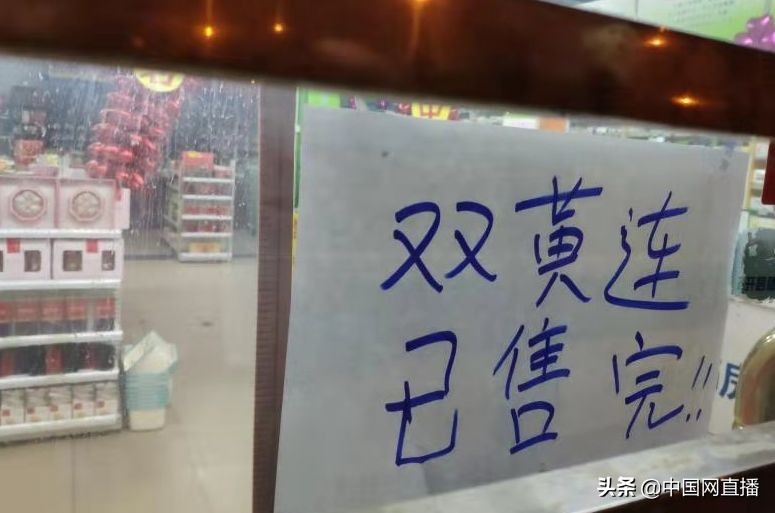 双黄连
已售完!!
头条 @中国网直播